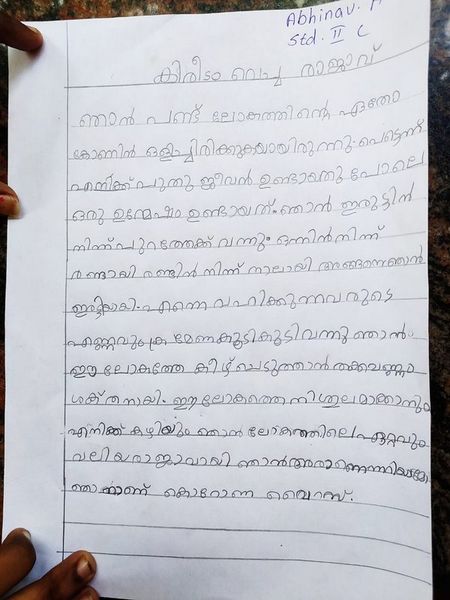 Abhinav. P
Std. II C
കിരീടം വെച്ച രാജാവ്
ഞാൻ പണ്ട് ലോകത്തിന്റെ ഏതോ
കോണിൽ ഒളിച്ചിരിക്കുകയായിരുന്നു. പെട്ടെന്ന്
എനിക്ക് പുതു ജീവൻ ഉണ്ടായതു പോലെ
ഒരു ഉന്മേഷം ഉണ്ടായത്. ഞാൻ ഇരുട്ടിൻ
നിന്ന് പുറത്തേക് വന്നു. ഒന്നിൻ നിന്ന്
രണ്ടായി രണ്ടിൽ നിന്ന് നാലായി അങ്ങനെ ഞാൻ
ഇരട്ടിയായി. എന്നെ വഹിക്കുന്നവരുടെ
എണ്ണവും ക്രമേണ കൂടി കൂടി വന്നു ഞാൻ.
ഈ ലോകത്തേ കീഴ് പെടുത്താൻ തക്കവണ്ണം
ശക്തനായി. ഈ ലോകത്തെ നിശ്ചലമാക്കാനും
എനിക്ക് കഴിയും ഞാൻ ലോകത്തിലെ ഏറ്റവും
വലിയ രാജാവായി ഞാൻ ആരാണെന്നറിയാമോ
ഞാനാണ് കൊറോണ വൈറസ്.